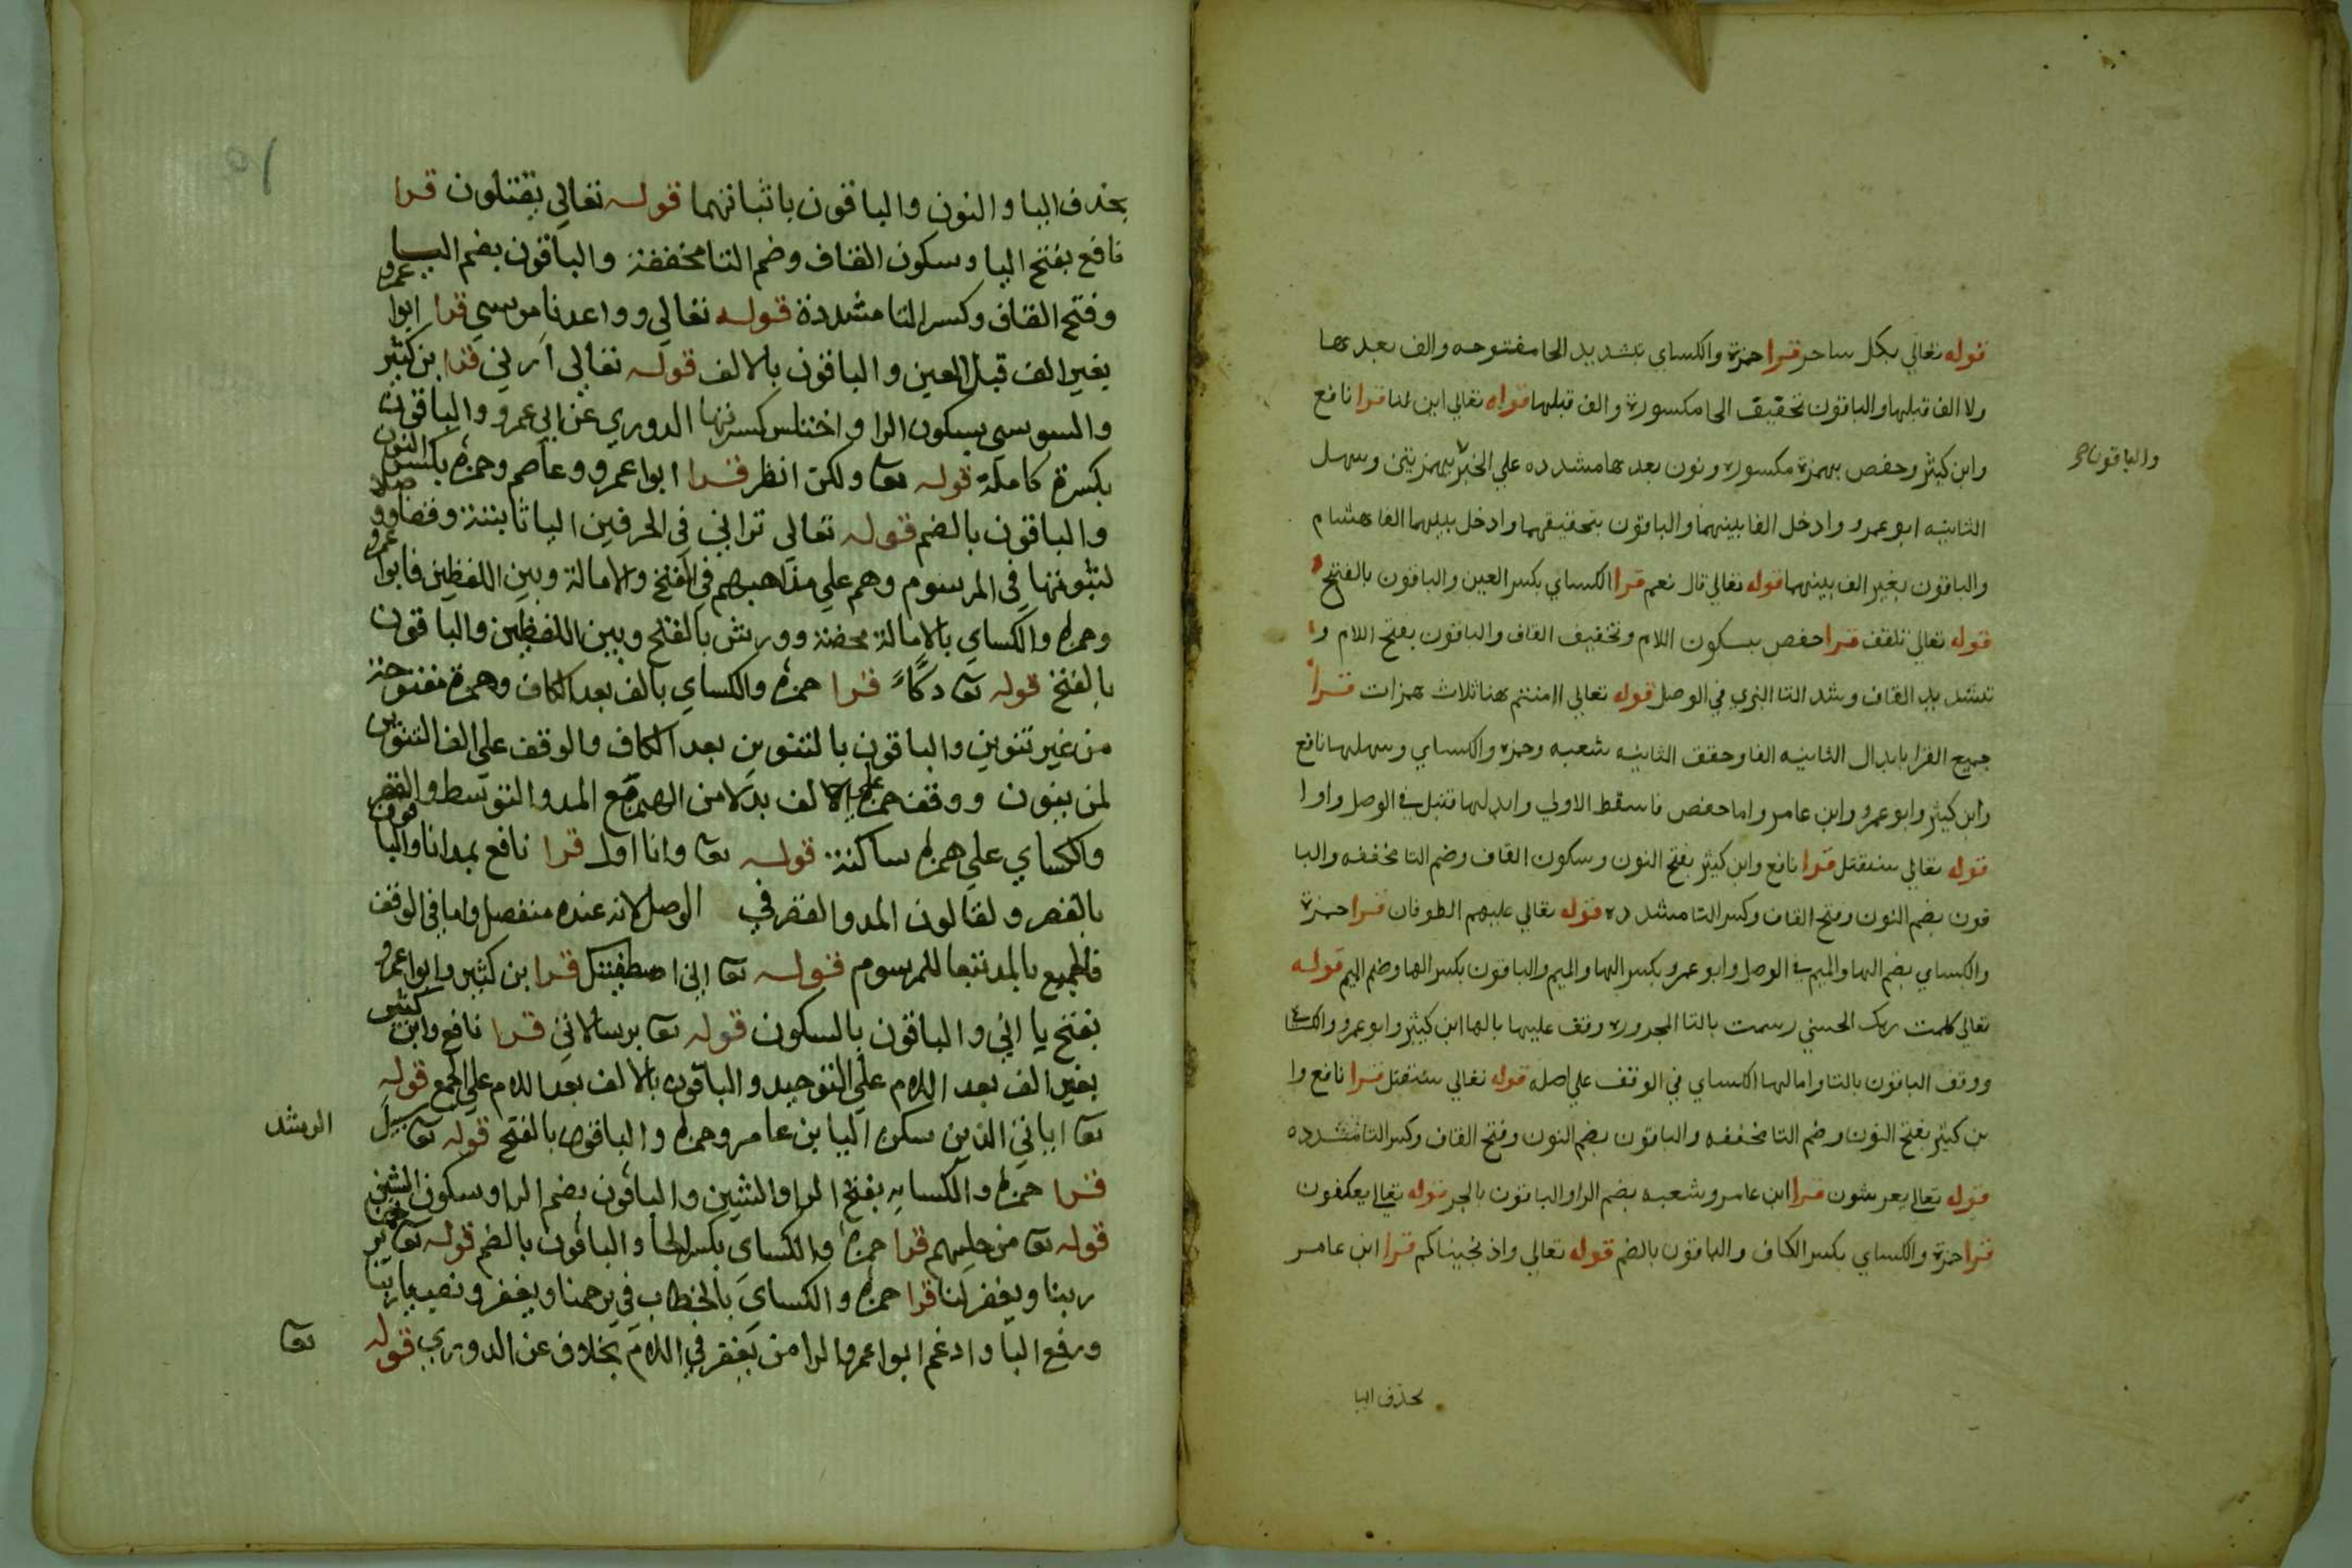 قوله تعالي بكل ساحر قرا حمزة والكساي بتشديد الحا مفتوحه والف بعدها
ولا الف قبلها والباقون بتخفيف الحا مكسورة والف قبلها قوله تعالي ائن لنا قرا نافع
وابن كيثر وحفص بهمزة مكسوره ونون بعدها مشدده علي الخبر بهمزيتن وسهل
والباقون
الثانيه ابو عمرو وادخل الفا بينهما والباقون بتحقيقهما وادخل بينهما الفا هشام
والباقون بغير الف بينهما قوله تعالي قال نعم قرا الكساي بكسر العين والباقون بالفتح
قوله تعالي تلقف قرا حفص بسكون اللام وتخفيف القاف والباقون بفتح اللام و
تشديد القاف وشدد التا البزي في الوصل قوله تعالي اامنتم هنا ثلاث همزات قرا
جميع القرا بابدال الثانيه الفا وحقق الثانيه شعبه وحمزه والكساي وسهلها نافع
وابن كيثر وابو عمرو وابن عامر واما حفص فاسقط الاولي وابدلها قنبل في الوصل واوا
قوله تعالي سنقتل قرا نافع وابن كيثر بفتح النون وسكون القاف وضم التا مخففه والبا
قون بضم النون وفتح القاف وكسر التا مشدده قوله تعالي عليهم الطوفان قرا حمزة
والكساي بضم الها والميم في الوصل وابو عمرو بكسر الها والميم والباقون بكسر الها وضم الميم قوله
تعالي كلمت ربك الحسني رسمت بالتا المجروره وقف عليها بالها ابن كيثر وابو عمرو والكسا
ووقف الباقون بالتا وامالها الكساي في الوقف علي اصله قوله تعالي سنقتل قرا نافع وا
بن كيثر بفتح النون وضم التا مخففه والباقون بضم النون وفتح القاف وكسر التا مشدده
قوله تعالي يعرشون قرا ابن عامر وشعبه بضم الرا والباقون بالجر قوله تعالي يعكفون
قرا حمزة والكساي بكسر الكاف والباقون بالضم قوله تعالي واذ نجيناكم قرا ابن عامر
بحذف اليا
بحذف اليا والنون والباقون باثباتهما قوله تعالي يقتلون قرا
نافع بفتح اليا وسكون القاف وضم التا مخففة والباقون بضم اليا
وفتح القاف وكسر التا مشددة قوله تعالي وواعدنا موسي قرا ابوا عمرو
بغير الف قبل العين والباقون بالالف قوله تعالي ارني قرا بن كثير
والسوسي بسكون الرا واختلس كسرتها الدوري عن ابي عمرو والباقون
بكسرة كاملة قوله تعا ولكن انظر قرا ابوا عمرو وعاصم وحمزه بكسر النون
والباقون بالضم قوله تعالي تراني في الحرفين اليا ثابتة وقفا ووصلا
لثبوتها في المرسوم وهم علي مذاهبهم في الفتح والامالة وبين اللفظين فابوا عمرو
وحمزه والكساي بالامالة محضة وورش بالفتح وبين اللفظين والباقون
بالفتح قوله تعا دكًّا قرا حمزه والكساي بالف بعد الكاف وهمزة مفتوحة
من غير تنوين والباقون بالتنوين بعد الكاف والوقف علي الف التنوين
لمن ينون ووقف حمزه علي الالف بدلا من الهمز مع المد والتوسط والقصر
والكساي علي همزه ساكنة قوله تعا وانا اول قرا نافع بمد انا والباقون
بالقصر ولقالون المد والقصر في الوصل لانه عنده منفصل واما في الوقف
فالجميع بالمد تبعا للمرسوم قوله تعا اني اصطفيتك قرا بن كثير وابوا عمرو
بفتح يا اني والباقون بالسكون قوله تعا برسالاتي قرا نافع وابن كثير
بغير الف بعد اللام علي التوحيد والباقون بالالف بعد اللام علي الجمع قوله
تعا اياتي الذين سكن اليا بن عامر وحمزه والباقون بالفتح قوله تعا سبيل
الرشد
قرا حمزه والكساي بفتح الرا والشين والباقون بضم الرا وسكون الشين
قوله تعا من حليهم قرا حمزه والكساي بكسر الحا والباقون بالضم قوله تعا يرحمنا
ربنا ويغفر لنا قرا حمزه والكساي بالخطاب في يرحمنا ويغفر ونصب با ربنا
ورفع البا وادغم ابوا عمرو الرا من يغفر في اللام بخلاف عن الدوري قوله
تعا